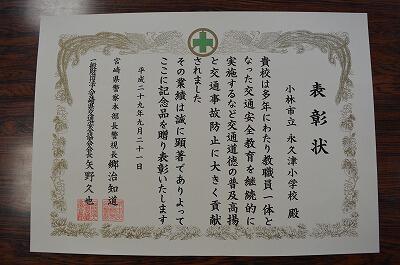 表彰状
小林市立 永久津小学校 殿
貴校は多年にわたり教職員一体と
なった交通安全教育を継続的に
実施するなど交通道徳の普及高揚
と交通事故防止に大きく貢献
されました
その業績は誠に顕著でありよって
ここに記念品を贈り表彰いたします
平成二十九年九月二十一日
宮崎県警察本部長警視長 郷治知道
一般財団法人宮崎県交通安全協会会長 矢野久也